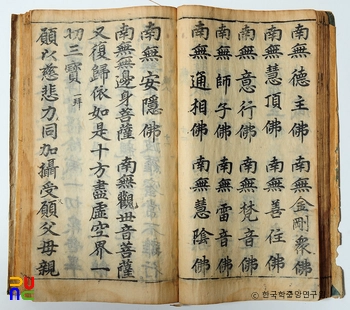 南無德主佛 南無金剛衆佛
南無慧頂佛 南無善住佛
南無意行佛 南無梵音佛
南無師子佛 南無雷音佛
南無通相佛 南無慧陰佛
南無安隱佛
南無無邊身菩薩 南無觀世音菩薩
又復歸依如是十方盡虛空界一
切三寶 一拜
願以慈悲力同加攝受願父母親
한국학중앙연구원